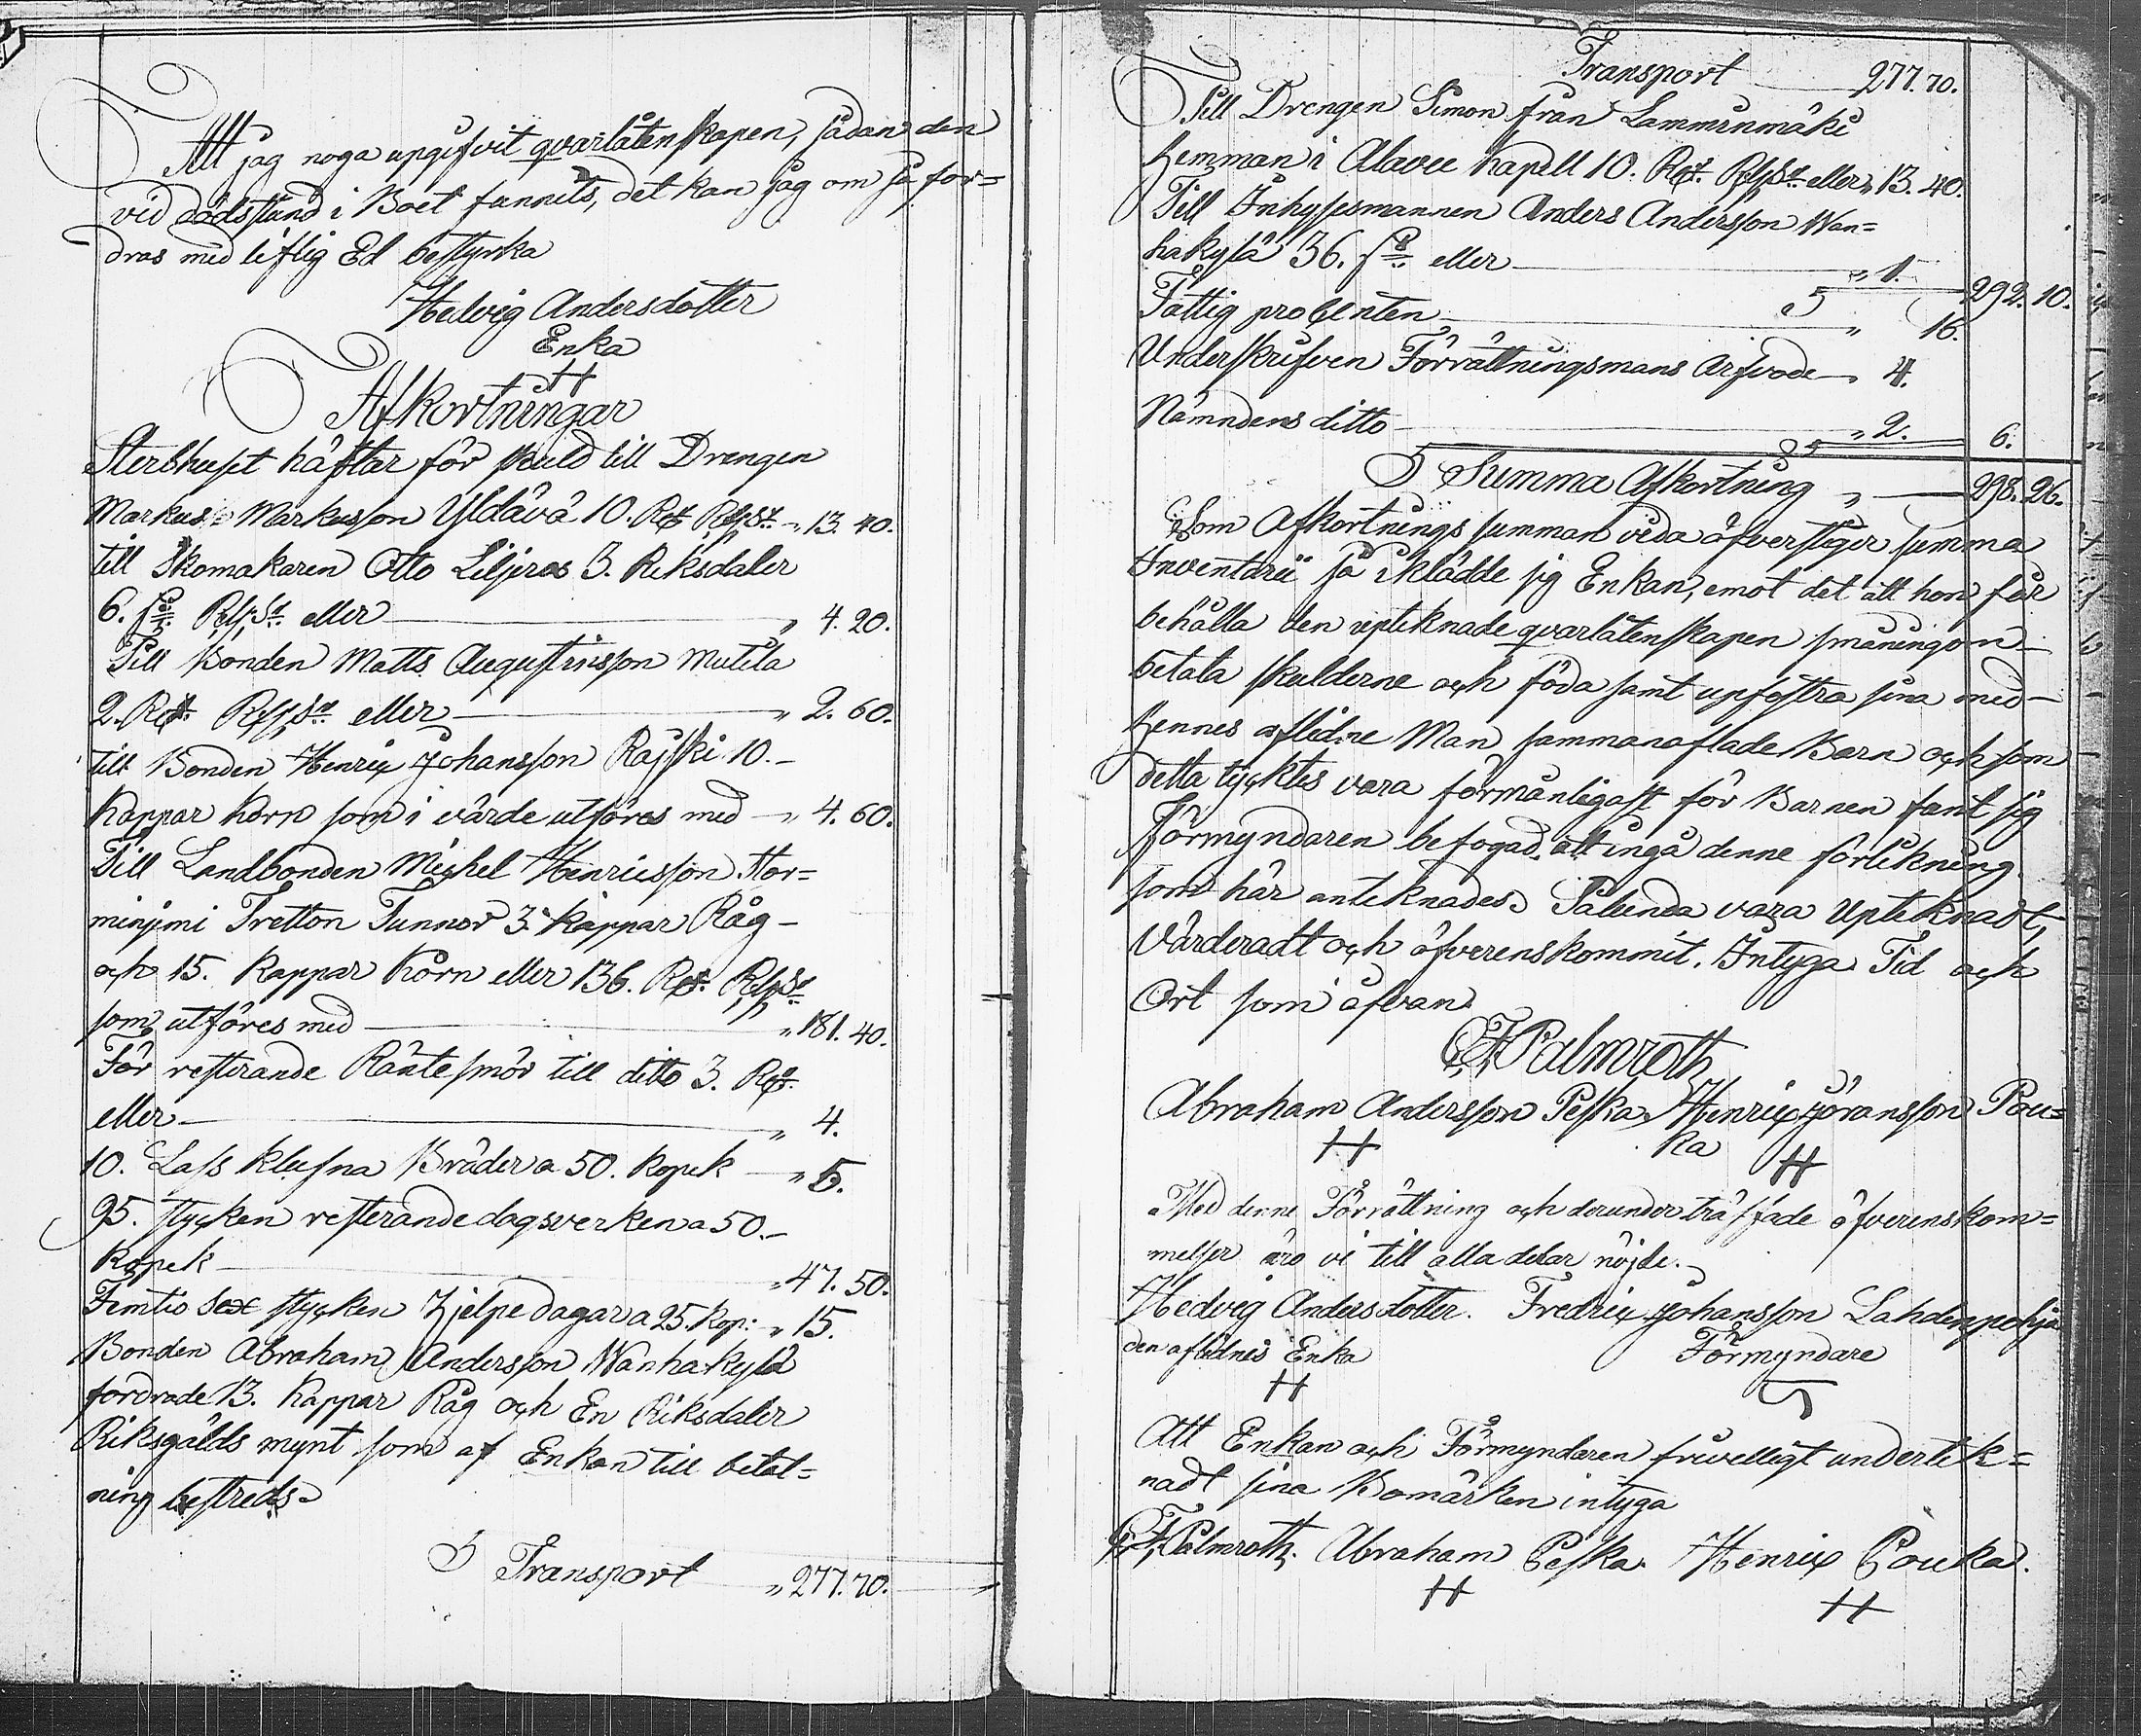 Att jag noga upgifvit qvarlåtenskapen, sådan den
vid dödsstund i Boet funnits, det kan jag om så for=
dras med liflig Ed bestyrka
Hedvig Andersdotter
Enka
Afkortningar
Sterbhuset häftar för skuld till Drengen
Markus Markusson Yldävä 10. Rd. RgSr. " 13. 40.
till Skomakaren Otto Liljeros 3. Riksdaler
6. sk. RgSr. eller " 4. 20.
Till Bonden Matts Augustinsson Mutila
2. Rd. RgSr. eller " 2. 60.
till Bonden Henrix Johansson Rajski 10.
Kappar Korn som i värde utföres med " 4. 60.
Till Landbonden Michel Henricsson Stor=
minjmi Tretton Tunnor 3. Kappar Råg
och 15. Kappar Korn eller 136. Rd. RgSr.
som utföres med " 181. 40.
För resterande Räntesmör till ditto 3. Rd.
eller " 4.
10. Lass klufna Bräder a 50. Kopek " 5.
95. stycken resterande dagsverken a 50.
Kopek " 47. 50.
Femtio sex stycken Hjelpedagar a 25. Kop: " 15.
Bonden Abraham Andersson Wanhakylä
fordrade 13. Kappar Råg och En Riksdaler
Riksgälds mynt som af Enkan till betal=
ning bestreds.
Transport " 277. 70.
Transport 277. 70.
Till Drengen Simon från Lamminmäki
Hemman i Alavu Kapell 10. Rd. RgSr. eller " 13. 40.
Till Inhysesmannen Anders Andersson Wan=
hakylä 36. sk. eller " 1. 292. 10.
Fattig procenten " 16.
Underskrifven Förrättningsmans Arfvode " 4.
Nämndens ditto " 2. 6.
Summa Afkortning " 298. 26.
Som Afkortnings summan vida öfverstiger summa
Inventarii så iklädde sig Enkan, emot det att hon får
behålla den upteknade qvarlåtenskapen småningom
betala skulderne och föda samt upfostra sina med
hennes aflidne Man sammanaflade Barn och som
detta tycktes vara förmånligast för Barnen fant sig
Förmyndaren befogad att ingå denne förlikning
som här anteknades. Sålunda vara Upteknadt,
Värderadt och öfverenskommit. Intyga Tid och
Ort som ofvan.
CF Palmroth
Abraham Andersson Peska Henrix Göransson Pou=
ka
Med denne Förrättning och derunder träffade öfverenskom=
melser äro vi till alla delar nöjde.
Hedvig Andersdotter. Fredrix Johansson Lahdenpohja
den aflidnes Enka Förmyndare
Att Enkan och Förmyndaren frivelligt undertek=
nadt sina Bomärken intyga
CF Palmroth. Abraham Peska Henrix Pouka.